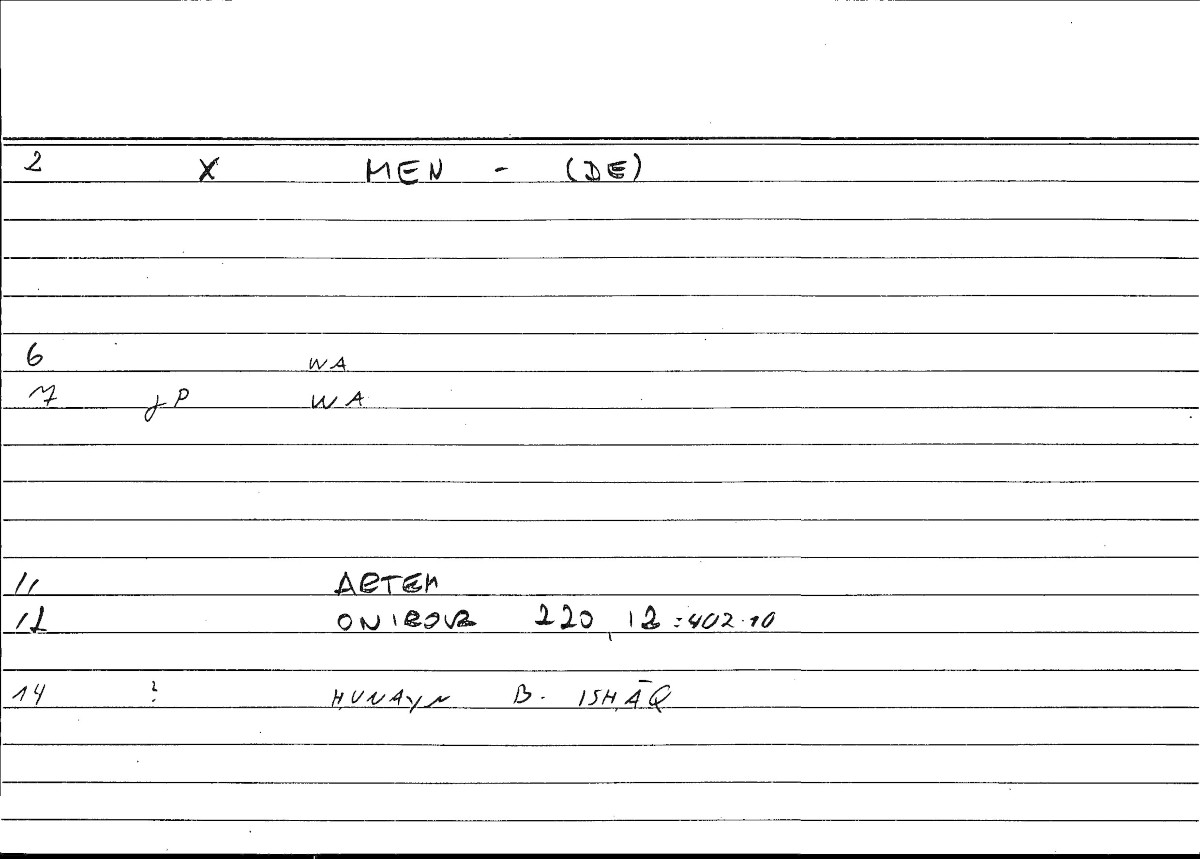 2 X MEN - (DE)
6 WA
7 gP WA
11 ARTEM
12 ONIROCR 220, 12 : 402.10
14 ? ḤUNAYN B. ISḤĀQ